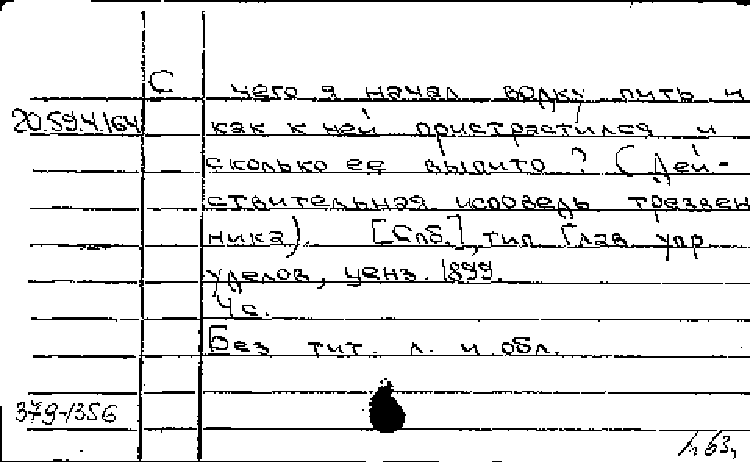 С чего я начал водку пить и
20.59.4/64 как к ней пристрастился и
сколько ее выпито? (Дей-
ствительная исповедь трезвен
ника). [Спб.], тип. Глав. упр.
уделов, ценз. 1899.
4 с.
Без тит. л. и обл.
379-1356